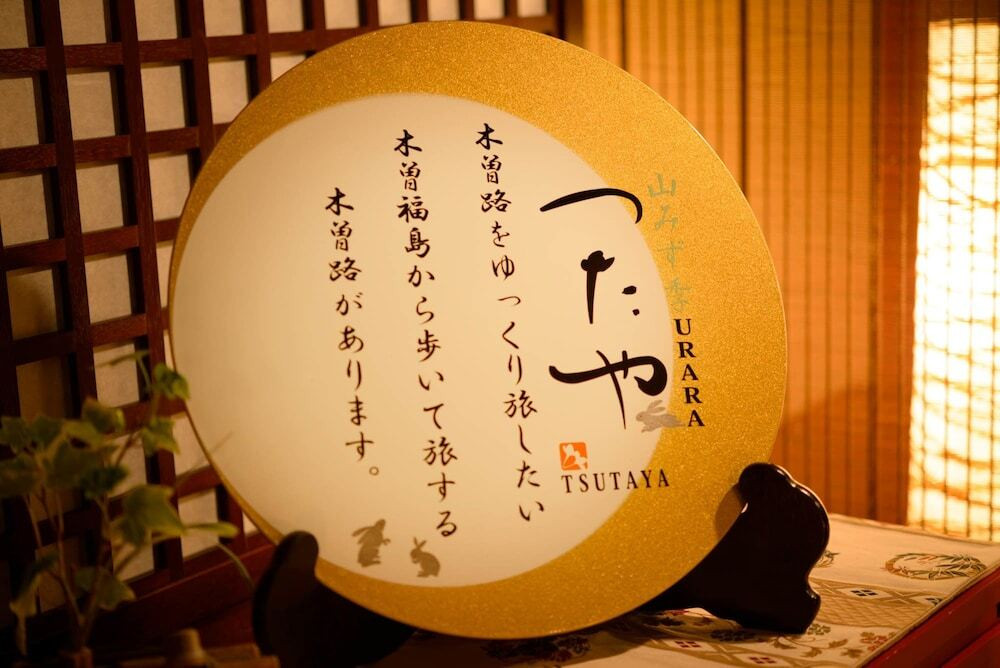 山みず季
URARA
つたや
TSUTAYA
木曽路をゆっくり旅したい
木曽福島から歩いて旅する
木曽路があります。